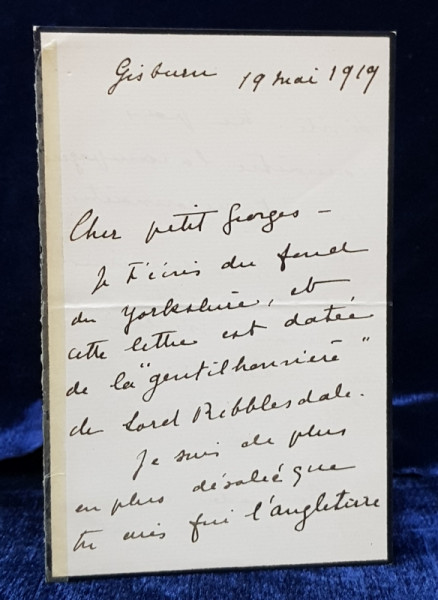 Gisburn 19 mai 1919
Cher petit Georges –
Je t'écris du fond
du Yorkshire, et
cette lettre est datée
de la "gentilhommière"
de Lord Ribblesdale.
Je suis de plus
en plus désolée que
tu aies fui l'angleterre